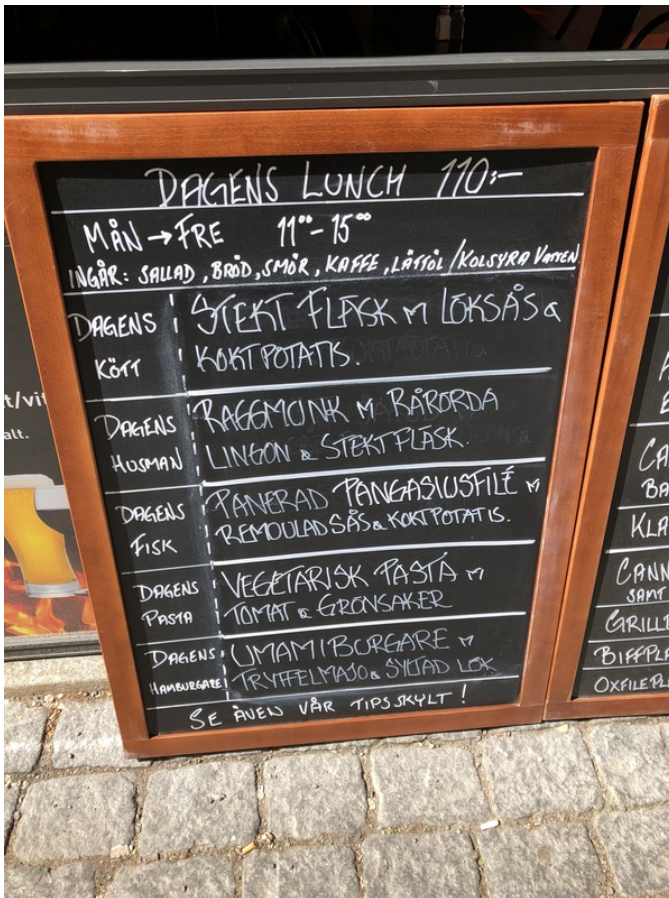 DAGENS LUNCH 110:-
MÅN → FRE 11⁰⁰ - 15⁰⁰
INGÅR: SALLAD, BRÖD, SMÖR, KAFFE, LÄTTÖL / KOLSYRA VATTEN
DAGENS
KÖTT
STEKT FLÄSK M LÖKSÅS &
KOKT POTATIS.
DAGENS
HUSMAN
RAGGMUNK M RÅRÖRDA
LINGON & STEKT FLÄSK.
DAGENS
FISK
PANERAD PANGASIUSFILÉ M
REMOULADSÅS & KOKT POTATIS.
DAGENS
PASTA
VEGETARISK PASTA M
TOMAT & GRÖNSAKER
DAGENS
HAMBURGARE
UMAMIBURGARE M
TRYFFELMAJO & SYLTAD LÖK
SE ÄVEN VÅR TIPSSKYLT!
t/vi
alt.
CA
BA
KLA
CANN
SAMT
GRILL
BIFFPLA
OXFILEPL